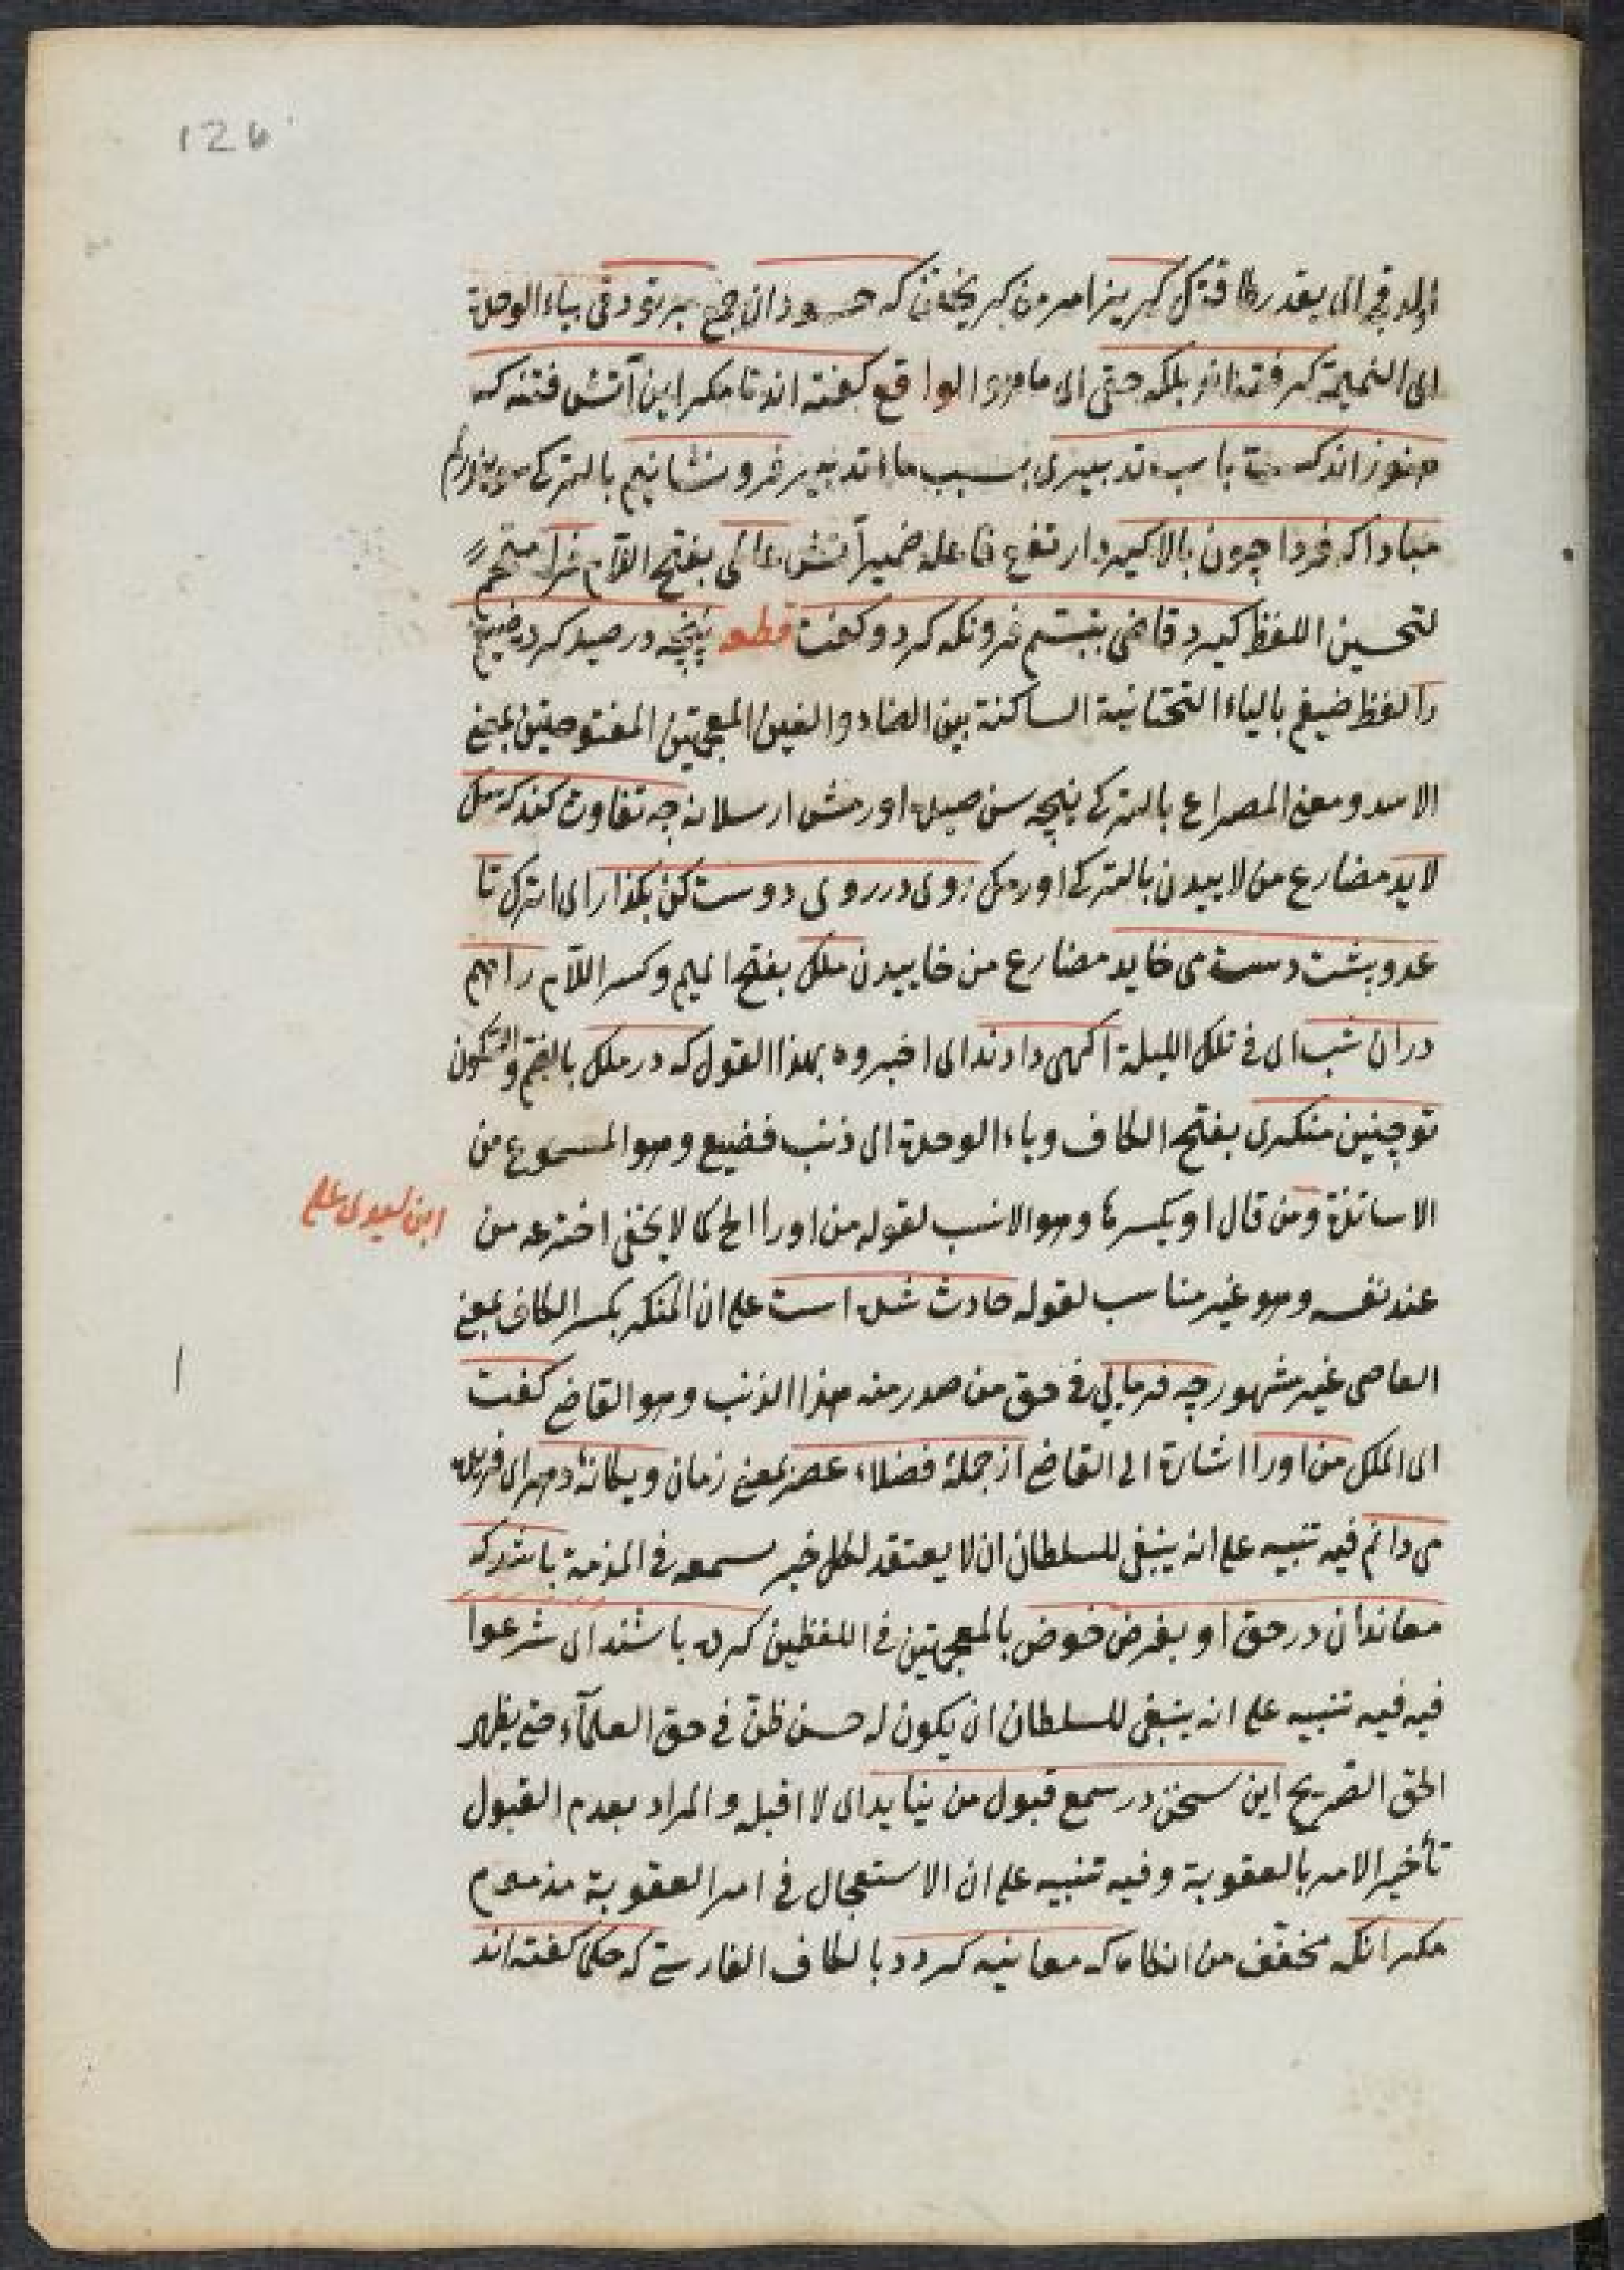 126
اى بقدر طاقتك كريز امر من كريختن كه حسودان جمع بر تو دقى بياء الوحدة
اى النميمة كرفته اند بلكه حتى اى ما هو الواقع كفته اند تا مكر اين آتش فتنه كه
هنوز اندكست باب تدبيرى بسبب ماء تدبير فرو نشانيم بالتركى
مبادا كه فردا چون بالا كيرد ارتفع فاعله ضمير آتش عالمى بفتح اللام فرا مقحم
لتحسين اللفظ كيرد قاضى بتبسم فرو نكه كرد و كفت قطعه پنجه در صيد كرده ضيغم
را لفظ ضيغم بالياء التحتانية الساكنة بين الضاد والغين المعجمتين المفتوحتين بمعنى
الاسد ومعنى المصراع بالتركى پنچه سن صيده اورمش ارسلانه چه تفاوت كند كه سك
لايد مضارع من لاييدن بالتركى اورمك روى در روى دوست كن بكذار اى اترك تا
عدو پشت دست مى خايد مضارع من خاييدن ملك بفتح الميم وكسر اللام را هم
دران شب اى فى تلك الليلة آكهى دادند اى اخبروه بهذا القول كه در ملك بالضم والسكون
تو چنين منكرى بفتح الكاف وياء الوحدة اى ذنب فضيع وهو المسموع من
الاساتذة ومن قال او بكسرها وهو الانسب لقوله من اورا الخ كما لا يخفى اخترعه من
ابن سيدى على
عند نفسه وهو غير مناسب لقوله حادث شده است على ان المنكر بكسر الكاف بمعنى
العاصى غير مشهور چه فرمايى فى حق من صدر منه هذا الذنب وهو القاضى كفت
اى الملك من اورا اشارة الى القاضى از جمله فضلاء عصر بمعنى زمان ويكانۀ دهر اى فريده
مى دانم فيه تنبيه على انه ينبغى للسلطان ان لا يعتقد لكل خبر سمعه فى المذمة باشد كه
معاندان در حق او بغرض خوض بالمعجمتين فى اللفظين كرده باشند اى شرعوا
فيه فيه تنبيه على انه ينبغى للسلطان ان يكون له حسن ظن فى حق العلمآء حتى يظهر
الحق الصريح اين سخن در سمع قبول من نيايد اى لا اقبله والمراد بعدم القبول
تأخير الامر بالعقوبة وفيه تنبيه على ان الاستعجال فى امر العقوبة مذموم
مكر انكه مخفف من انكاه كه معاينه كردد بالكاف الفارسى كه حكما كفته اند